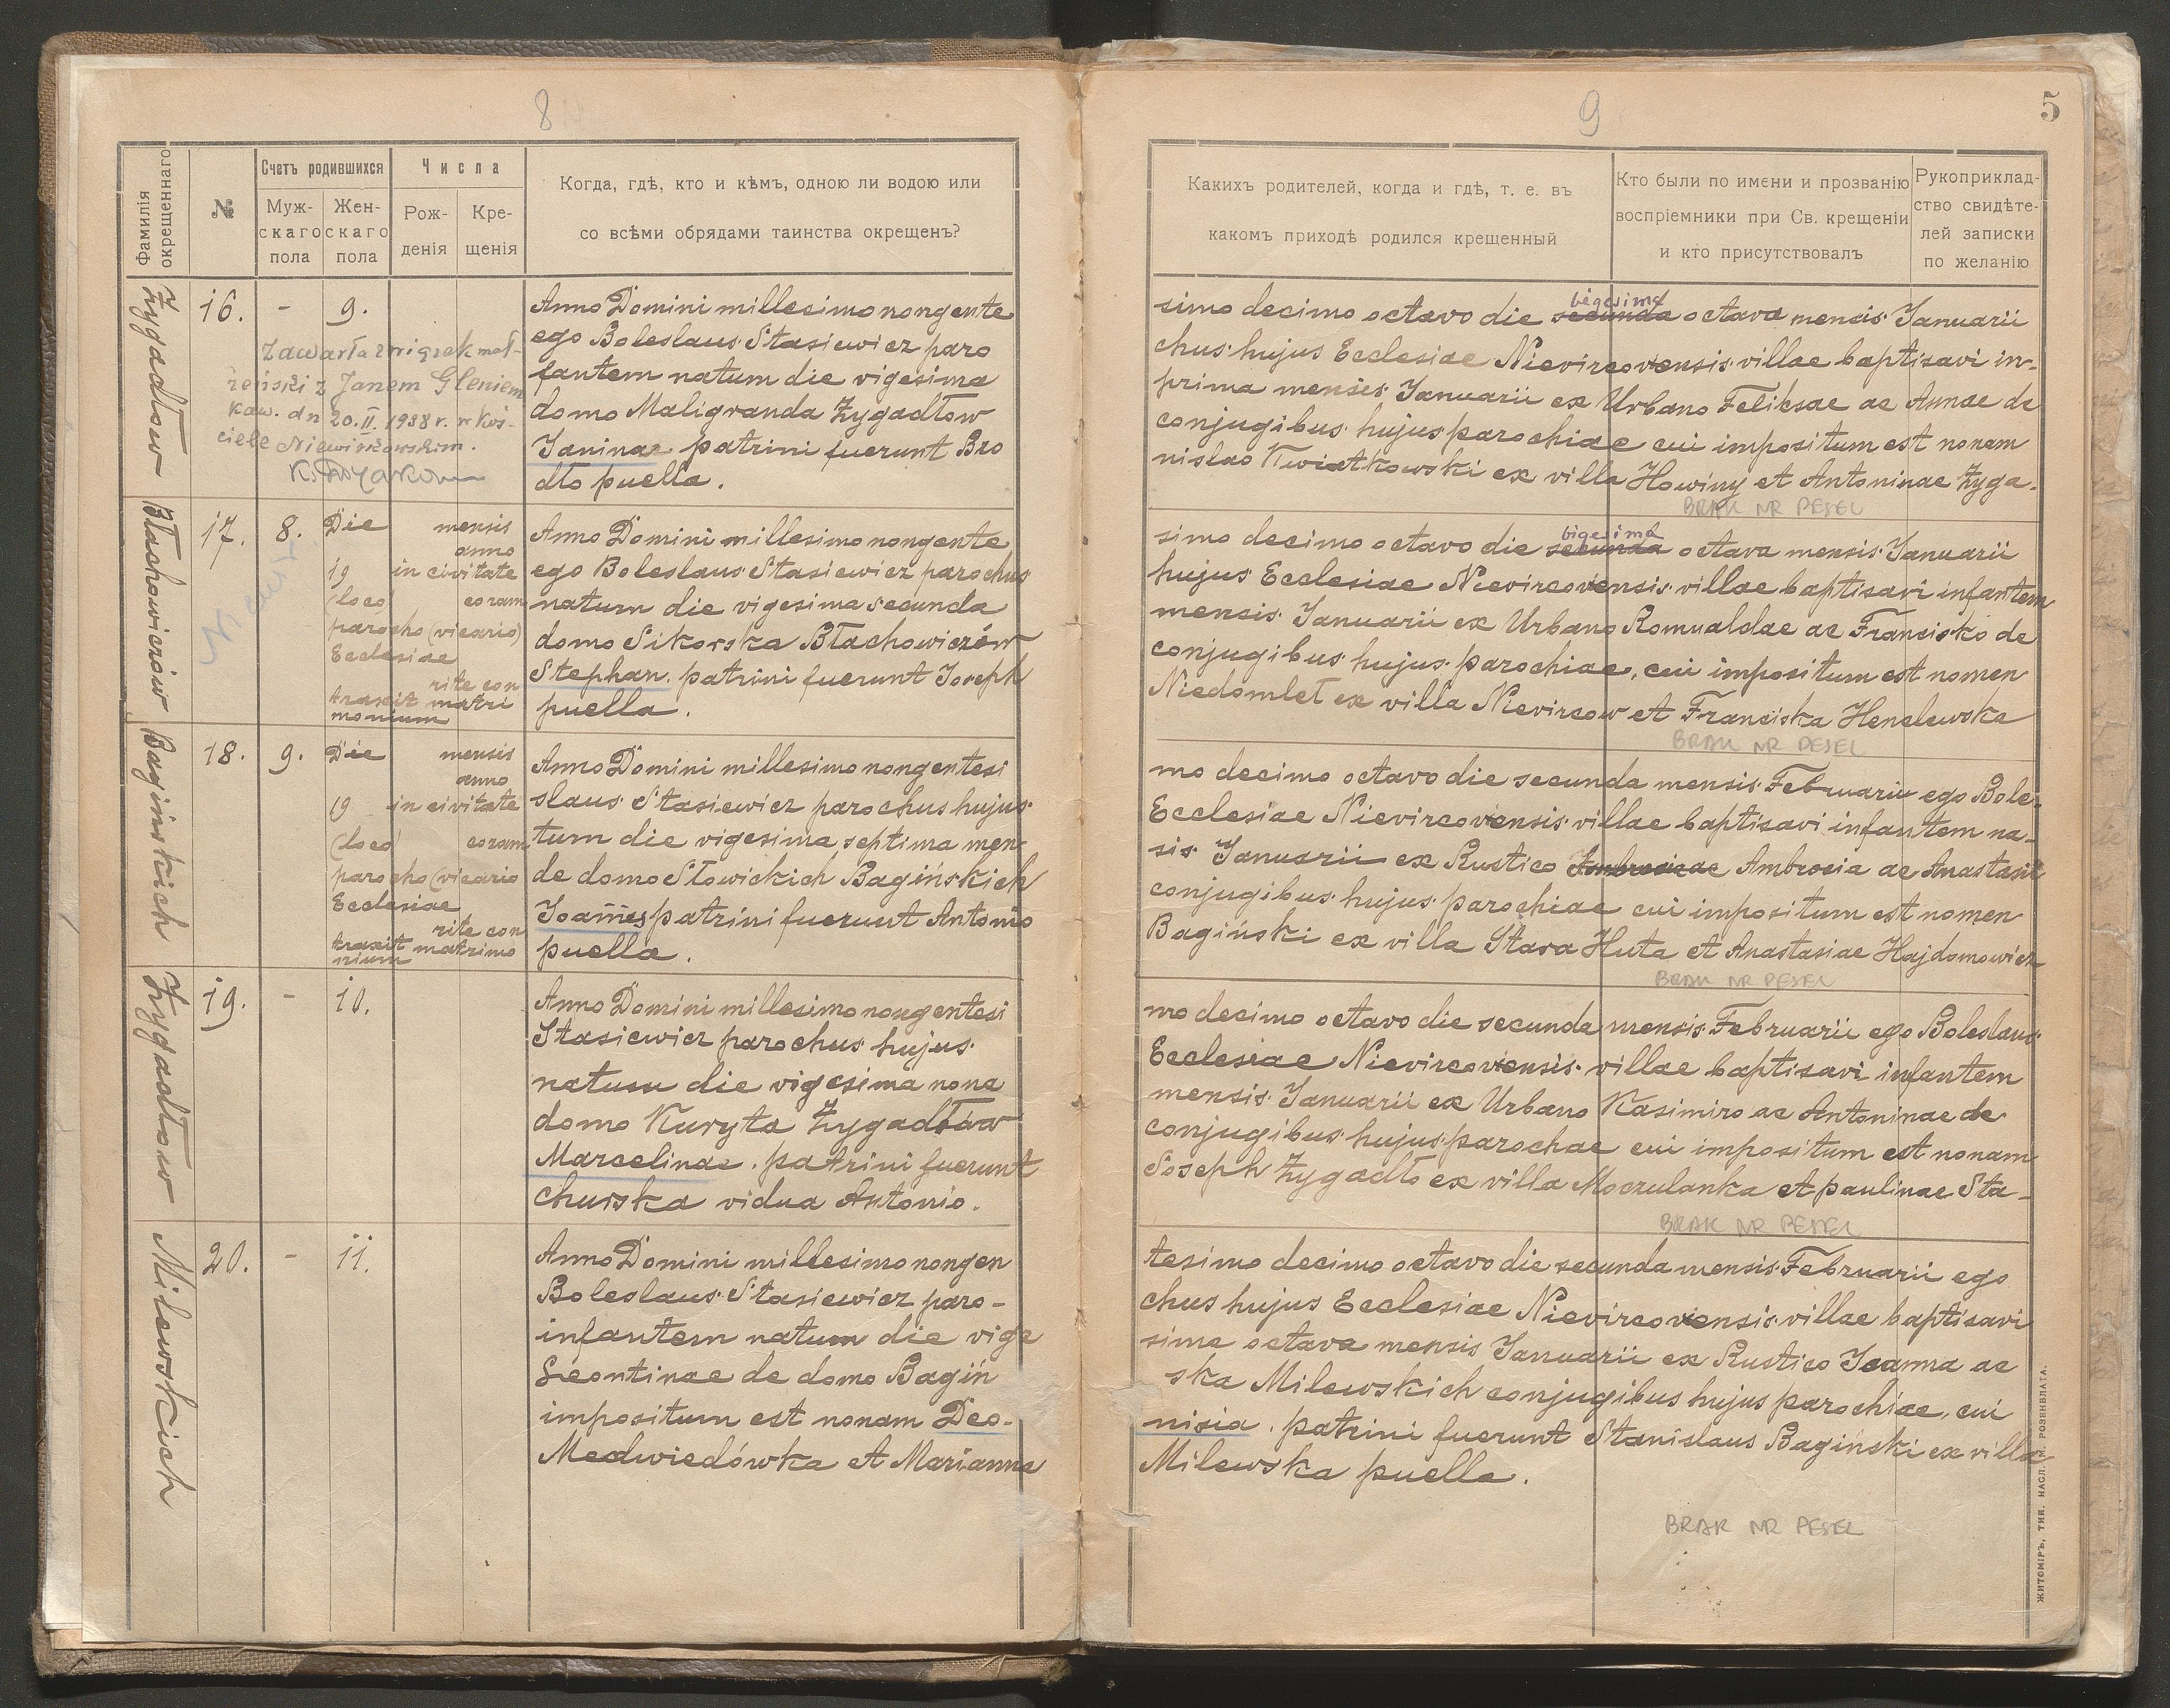 8
Фамилія
окрещеннаго
№
Счетъ родившихся
Муж-
скаго
пола
Жен-
скаго
пола
Числа
Рож-
денія
Кре-
щенія
Когда, гдѣ, кто и кѣмъ, одною ли водою или
со всѣми обрядами таинства окрещенъ?
Żygadłow
16.
-
9.
Zawarła związek mał-
żeński z Janem Gleniem
kaw. dn 20.II.1938 r. w Koś-
ciele Niewirkowskim.
Anno Domini millesimo nongente
ego Boleslaus Stasiewicz paro
fantem natum die vigesima
domo Maligranda Żygadłow
Janinae patrini fuerunt Bro
dło puella.
Błachowiczów
17.
8.
Die mensis
anno
19 in civitate
(loco) coram
parocho (vicario)
Ecclesiae
rite con
traxit matri
monium
Anno Domini millesimo nongente
ego Boleslaus Stasiewicz parochus
natum die vigesima secunda
domo Sikorska Błachowiczów
Stephan. patrini fuerunt Joseph
puella.
Baginskich
18.
9.
Die mensis
anno
19 in civitate
(loco) coram
parocho (vicario
Ecclesiae
rite con
traxit matrimo
nium
Anno Domini millesimo nongentesi
slaus Stasiewicz parochus hujus
tum die vigesima septima men-
de domo Słowickich Bagińskich
Joannes patrini fuerunt Antonio
puella.
Żygadłow
19.
-
10.
Anno Domini millesimo nongentesi
Stasiewicz parochus hujus
natum die vigesima nona
domo Kuryta Żygadłów
Marcelinae. patrini fuerunt
churska vidua Antonio.
Milewskich
20.
-
11.
Anno Domini millesimo nongen
Boleslaus Stasiewicz paro-
infantem natum die vige
Leontinae de domo Bagiń
impositum est nonam Deo-
Medwiedówka et Marianna
9
5
Какихъ родителей, когда и гдѣ, т. е. въ
какомъ приходѣ родился крещенный
Кто были по имени и прозванію
воспріемники при Св. крещеніи
и кто присутствовалъ
Рукоприклад-
ство свидѣте-
лей записки
по желанію
vigesima
simo decimo octavo die secunda octava mensis Januarii
chus hujus Ecclesiae Nievircoviensis villae baptisavi in-
prima mensis Januarii ex Urbano Feliksae ac Annae de
conjugibus hujus parochiae cui impositum est nonam
nislao Kwiatkowski ex villa Howiny et Antoninae Żyga-
BRAK NR PESEL
vigesima
simo decimo octavo die secunda octava mensis Januarii
hujus Ecclesiae Nievircoviensis villae baptisavi infantem
mensis Januarii ex Urbano Romualdae ac Francisko de
conjugibus hujus parochiae, cui impositum est nomen
Niedomlet ex villa Nievircow et Franciska Henclewska
BRAK NR PESEL
mo decimo octavo die secunda mensis Februarii ego Bole-
Ecclesiae Nievircoviensis villae baptisavi infantem na-
sis Januarii ex Rustico Ambrosiae Ambrosia ac Anastasii
conjugibus hujus parochiae cui impositum est nomen
Bagiński ex villa Stara Huta et Anastasiae Hajdomowicz
BRAK NR PESEL
mo decimo octavo die secunda mensis Februarii ego Boleslaus
Ecclesiae Nievircoviensis villae baptisavi infantem
mensis Januarii ex Urbano Kasimiro ac Antoninae de
conjugibus hujus parochae cui impositum est nonam
Joseph Żygadło ex villa Moczulanka et paulinae Sta-
BRAK NR PESEL
tesimo decimo octavo die secunda mensis Februarii ego
chus hujus Ecclesiae Nievircoviensis villae baptisavi
sima octava mensis Januarii ex Rustico Joanna ac
ska Milewskich conjugibus hujus parochiae, cui
nisia. patrini fuerunt Stanislaus Bagiński ex villa
Milewska puella.
BRAK NR PESEL
ЖИТОМІРЪ, ТИП. НАСЛ. М. РОЗЕНБЛАТА.